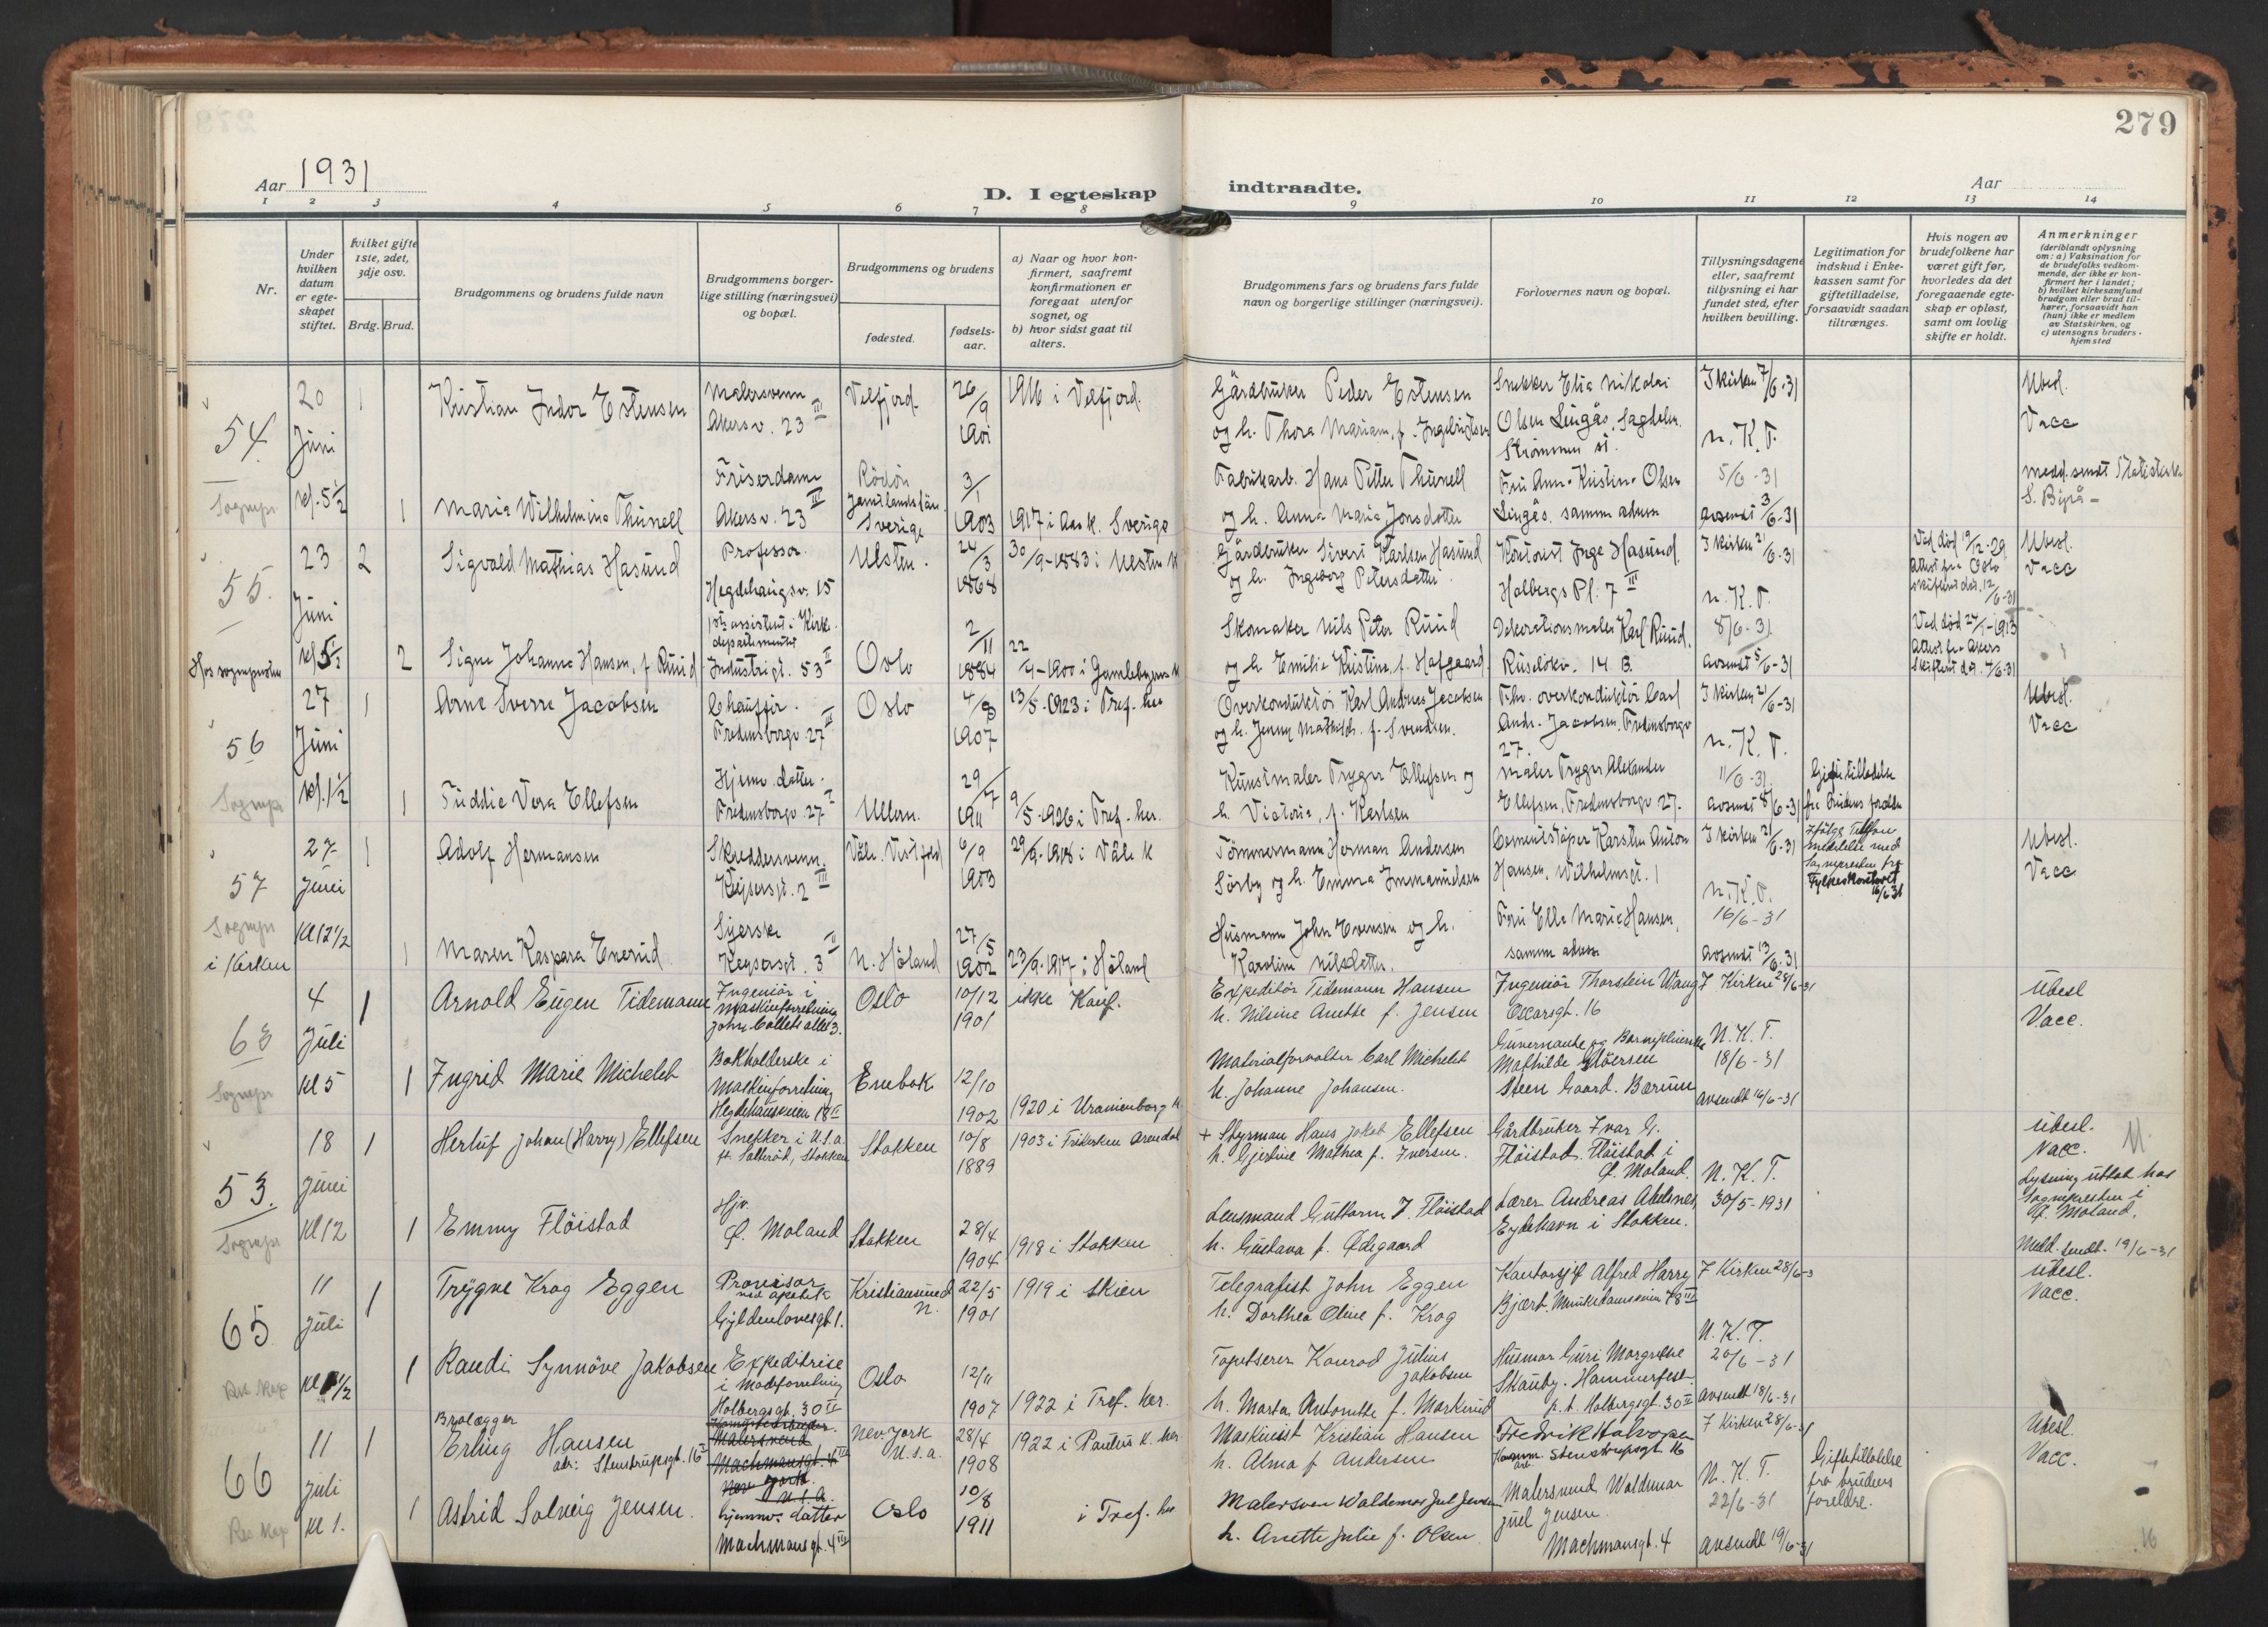 279
Aar 1931
D. I egteskap indtraadte.
Aar
1 2 3 4 5 6 7 8 9 10 11 12 13 14
Nr.
Under hvilken datum er egteskapet stiftet.
Hvilket gifte 1ste, 2det, 3dje osv.
Brdg. Brud.
Brudgommens og brudens fulde navn
Brudgommens borgerlige stilling (næringsvei) og bopæl.
Brudgommens og brudens
fødested.
fødselsaar.
a) Naar og hvor konfirmert, saafremt konfirmationen er foregaat utenfor sognet, og
b) hvor sidst gaat til alters.
Brudgommens fars og brudens fars fulde navn og borgerlige stillinger (næringsvei).
Forlovernes navn og bopæl.
Tillysningsdagene eller, saafremt tillysning ei har fundet sted, efter hvilken bevilling.
Legitimation for indskud i Enkekassen samt for giftetilladelse, forsaavidt saadan tiltrænges.
Hvis nogen av brudefolkene har været gift før, hvorledes da det foregaaende egteskap er opløst, samt om lovlig skifte er holdt.
Anmerkninger (deriblandt oplysning om: a) Vaksination for de brudefolks vedkommende, der ikke er konfirmert her i landet; b) hvilket kirkesamfund brudgom eller brud tilhører, forsaavidt han (hun) ikke er medlem av Statskirken, og c) utensogns bruders hjemsted
54. 20 Juni kl. 5 1/2
Sognepr.
1 Kristian Indor Estensen
Malersvenn Akersv. 23 III
Velfjord. 26/9 1901
1916 i Velfjord.
Gårdbruker Peder Estensen og h. Thora Mariam, f. Ingebrigtsen
Snekker Elia Nikolai Olsen Lingås, Sagdalen, Strømmen st.
I kirken 7/6-31
N. K. T.
Ubesl.
Vacc
1 Maria Wilhelmina Thunell
Friserdame Akersv. 23 III
Rödön Jemtlandslän Sverige 3/1 1903
1917 i Aas k. Sverige
Fabrikarb. Hans Petter Thunell og h. Anna Maria Jonsdotter
Fru Anna Kristine Olsen Lingås, samme adresse
5/6-31
avsendt 3/6-31
Medd. sendt Statistisk S. Byrå -
55. 23 Juni kl. 5 1/2
Hos sognepresten
2 Sigvald Mathias Hasund
Professor. Hegdehaugsv. 15
Ulstein. 24/3 1868
30/9-1883 i Ulstein k
Gårdbruker Sivert Karlsen Hasund og h. Ingeborg Petersdatter
Kontorist Inge Hasund. Holbergs Pl. 7 III
I kirken 21/6-31
N. K. T.
Ved død 19/12-29 Attest fra Oslo skifterett dat. 12/6-31
Ubesl.
Vacc
2 Signe Johanne Hansen, f. Ruud
assistent i Kirkedepartementet Industrigt. 53 II
Oslo 2/11 1884
22/4-1900 i Gamlebyens k
Skomaker Nils Peter Ruud og h. Emilie Kristine, f. Hafgaard
Dekorationsmaler Karl Ruud, Ruseløkv. 14 B.
8/6-31
avsendt 5/6-31
Attest fra Akers Skifterett dat. 4/6-31
56 27 Juni kl. 1 1/2
Sognepr
1 Arne Sverre Jacobsen
Chauffør. Fredensborgv 27 III
Oslo 1907
13/5-1923 i Tref. her
Overkonduktør Karl Andreas Jacobsen og h. Jenny Mathilde f. Svendsen.
Fhv. overkonduktør Carl Andr. Jacobsen, Fredensborgv 27.
I kirken 21/6-31
N. K. T.
Ubesl.
Vacc
1 Tuddie Vera Ellefsen
Hjemv. datter. Fredensborgv. 27 I
Ullern. 29/7 1911
9/5-1926 i Tref. her.
Kunstmaler Trygve Ellefsen og h. Victoria, f. Karlsen
Maler Trygve Alexander Ellefsen, Fredensborgv 27.
11/6-31
avsendt 8/6-31
Giftetilladelse fra brudens foreldre
57 27 Juni Kl 12 1/2
Sognepr i Kirken
1 Adolf Hermansen
Skreddersvenn. Keysersgt. 2 III
Våle. Vestfold 6/9 1903
29/9-1918 i Våle k
Tømmermann Herman Andersen Sørby og h. Emma Immanuelsen
Cementstøper Karsten Anton Hansen, Wilhelmsgt. 1
I kirken 21/6-31
N. K. T.
Ifølge Telefon meddelelse med Sognepresten fra Fylkeskontoret 16/6 31
Ubesl.
Vacc
1 Maren Kaspara Enerud
Syerske Keysersgt. 3 II
N. Höland 27/5 1902
23/9-1917 i Höland
Husmann John Evensen og h. Karoline Nilsdatter.
Fru Ella Marie Hansen, samme adresse
16/6-31
avsendt 13/6-31
63 4 Juli kl 5
Sognepr
1 Arnold Eugen Tidemann
Ingeniör i maskinforretning John Colletts allé 3.
Oslo 10/12 1901
ikke Konf.
Expeditör Tidemann Hansen h. Nilsine Anette f. Jensen
Ingeniör Thorstein Wang Oscarsgt. 16
I Kirken 28/6-31
N. K. T.
Ubesl
Vacc.
1 Ingrid Marie Michelet
Bokholderske i Maskinforretning Hegdehaugsveien 18 II
Enebak 12/10 1902
1920 i Uranienborg k.
Materialforvalter Carl Michelet h. Johanne Johansen.
Guvernante og Barnepleierske Mathilde Steen Gaard. Bærum
18/6-31
avsendt 16/6-31
53. 18 Juni kl 12
Sognepr
1 Herluf Johan (Harry) Ellefsen
Snekker i U.S.A. ft. Salteröd, Stokken
Stokken 10/8 1889
1903 i Frikirken Arendal
+ Styrman Hans Jakob Ellefsen h. Gjertine Mathea f. Iversen.
Gårdbruker Ivar G. Flöistad. Flöistad i Ø. Moland.
N. K. T.
Ubesl.
Vacc.
Lysning uttatt hos Sognepresten i Ø. Moland.
1 Emmy Flöistad
Hjv. Ø. Moland
Stokken 28/4 1904
1918 i Stokken
Lensmand Guttorm J. Flöistad h. Gustava f. Ødegaard
Lærer Andreas Abelsnes, Eydehavn i Stokken.
30/5-1931
Medd. sendt. 19/6-31
65 11 Juli kl 1/2
Res Kap
1 Trygve Krog Eggen
Provisor ved apotek Gyldenløvesgt 1.
Kristiansund N. 22/5 1901
1919 i Skien
Telegrafist John Eggen h. Dorthea Oline f. Krog
Kontorsjef Alfred Harry Bjært. Munkedamsveien 78 III
I Kirken 28/6-3
N. K. T.
Ubesl.
Vacc.
1 Randi Synnöve Jakobsen
Expeditrise i Modeforretning Holbergsgt. 30 II
Oslo 12/11 1907
1922 i Tref. her.
Tapetserer Konrad Julius Jakobsen h. Marta Antonette f. Markerud
Husmor Guri Margrethe Skauby. Hammerfest. p.t. Holbergsgt. 30 II
20/6-31
avsendt 18/6-31
66 11 Juli kl 1.
Res. Kap
1 Brolægger Erling Hansen
adr: Stenstrupsgt. 16 I
Malersvend
Machmansgt. 4 III
New York U.S.A.
New York U.S.A. 28/4 1908
1922 i Paulus k. her
Maskinist Kristian Hansen h. Alma f Andersen
Fredrik Halvorsen Komm. arb. Stenstrupsgt 16
I Kirken 28/6-31
N. K. T.
Giftetilladelse fra brudens foreldre.
Ubesl.
Vacc.
1 Astrid Solveig Jensen.
hjemmev. datter Machmansgt. 4 III
Oslo 10/8 1911
i Tref. her
Malersven Waldemar Juel Jensen h. Anette Julie f. Olsen
Malersvend Waldemar Juel Jensen. Machmansgt. 4
22/6-31
avsendt 19/6-31